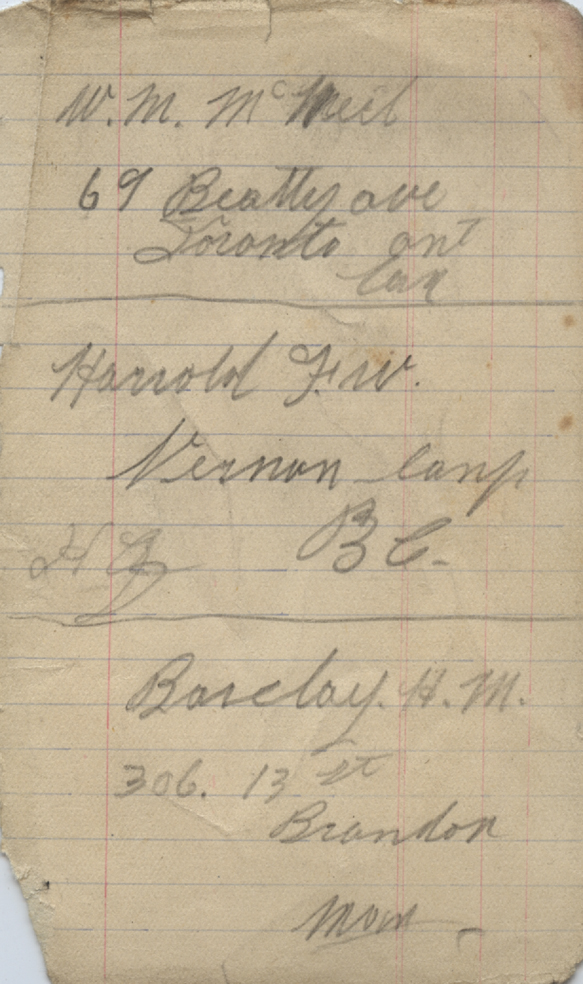 W. M. McNeil
69 Beatty ave
Toronto ont
Can
Harrold F. W.
Vernon Camp
B C.
Barclay. H. M.
306. 13 St
Brandon
Man